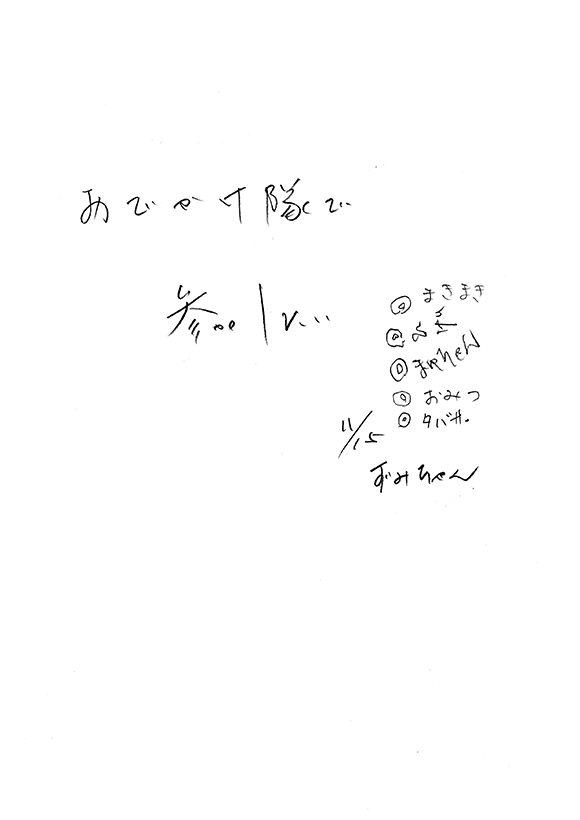 おでかけ隊で
参加したい…
◎まきまき
◎まゆちゃん
◎おみつ
◎タバサ
11/15
ずみちゃん